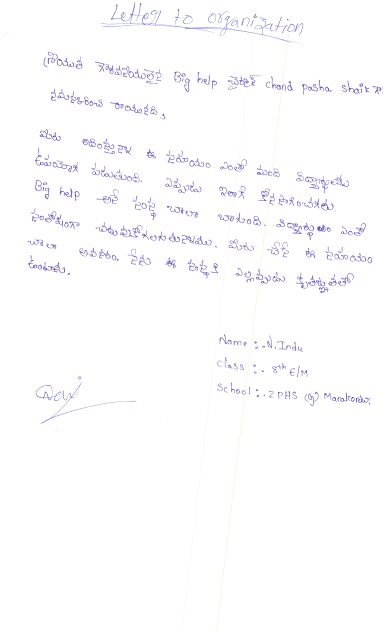 Letter to organization
శ్రీయుత గౌరవనీయులైన Big help చైర్మెన్ chand pasha shaik గారికి
నమస్కరించి రాయునది,
మీరు అందిస్తున్న ఈ సహాయం ఎంతో మంది విద్యార్థులకు
ఉపయోగ పడుతుంది. ఎప్పుడు ఇలాగే కొనసాగించగలరు
Big help అనే సంస్థ చాలా బాగుంది. విద్యార్థులం ఎంతో
సంతోషంగా చదువుకోగలుగుతున్నాము. మీరు చేసే ఈ సహాయం
చాలా అవసరం. నేను ఈ సంస్థకి ఎల్లప్పుడు కృతజ్ఞతతో
ఉంటాను.
Name :- N.Indu
class :- 8th E/M
School :- ZPHS (G)